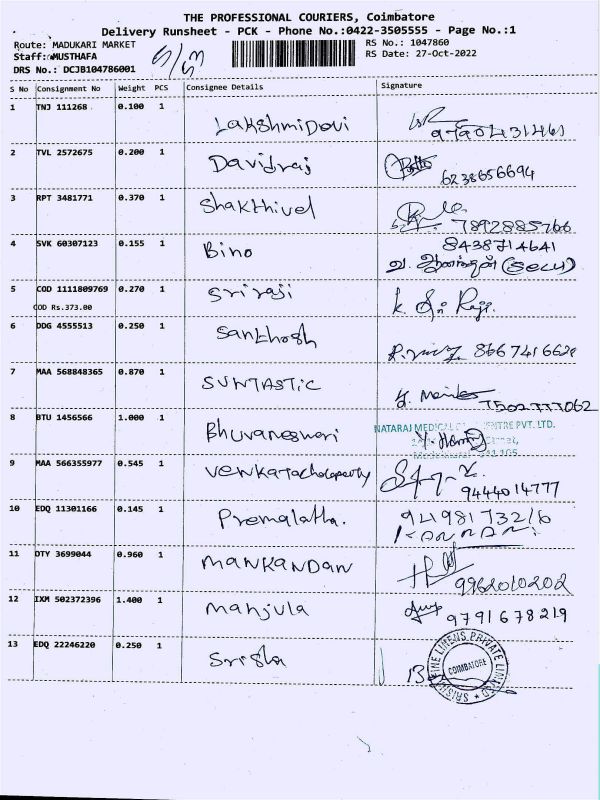 THE PROFESSIONAL COURIERS, Coimbatore
Delivery Runsheet - PCK - Phone No.:0422-3505555 - Page No.:1
Route: MADUKARI MARKET RS No.: 1047860
Staff: MUSTHAFA RS Date: 27-Oct-2022
DRS No.: DCJB104786001
S No Consignment No Weight PCS Consignee Details Signature
1 TNJ 111268 0.100 1 Lakshmi Devi
2 TVL 2572675 0.200 1 Davidraj 6238656694
3 RPT 3481771 0.370 1 Shakthivel 7892885766
4 SVK 60307123 0.155 1 Bino 8438714641
5 COD 1111809769 0.270 1 Sriraji K. Sri Raji.
COD Rs.373.00
6 DDG 4555513 0.250 1 Santhosh
7 MAA 568848365 0.870 1 SUNTASTIC 7502777062
8 BTU 1456566 1.000 1 Bhuvaneswari NATARAJ MEDICAL CENTRE PVT. LTD.
9 MAA 566355977 0.545 1 9444014777
10 EDQ 11301166 0.145 1 Premalatha.
11 DTY 3699044 0.960 1 MANKANDAN 9962010202
12 IXM 502372396 1.400 1 Manjula 9791678219
13 EDQ 22246220 0.250 1 Srisha COIMBATORE